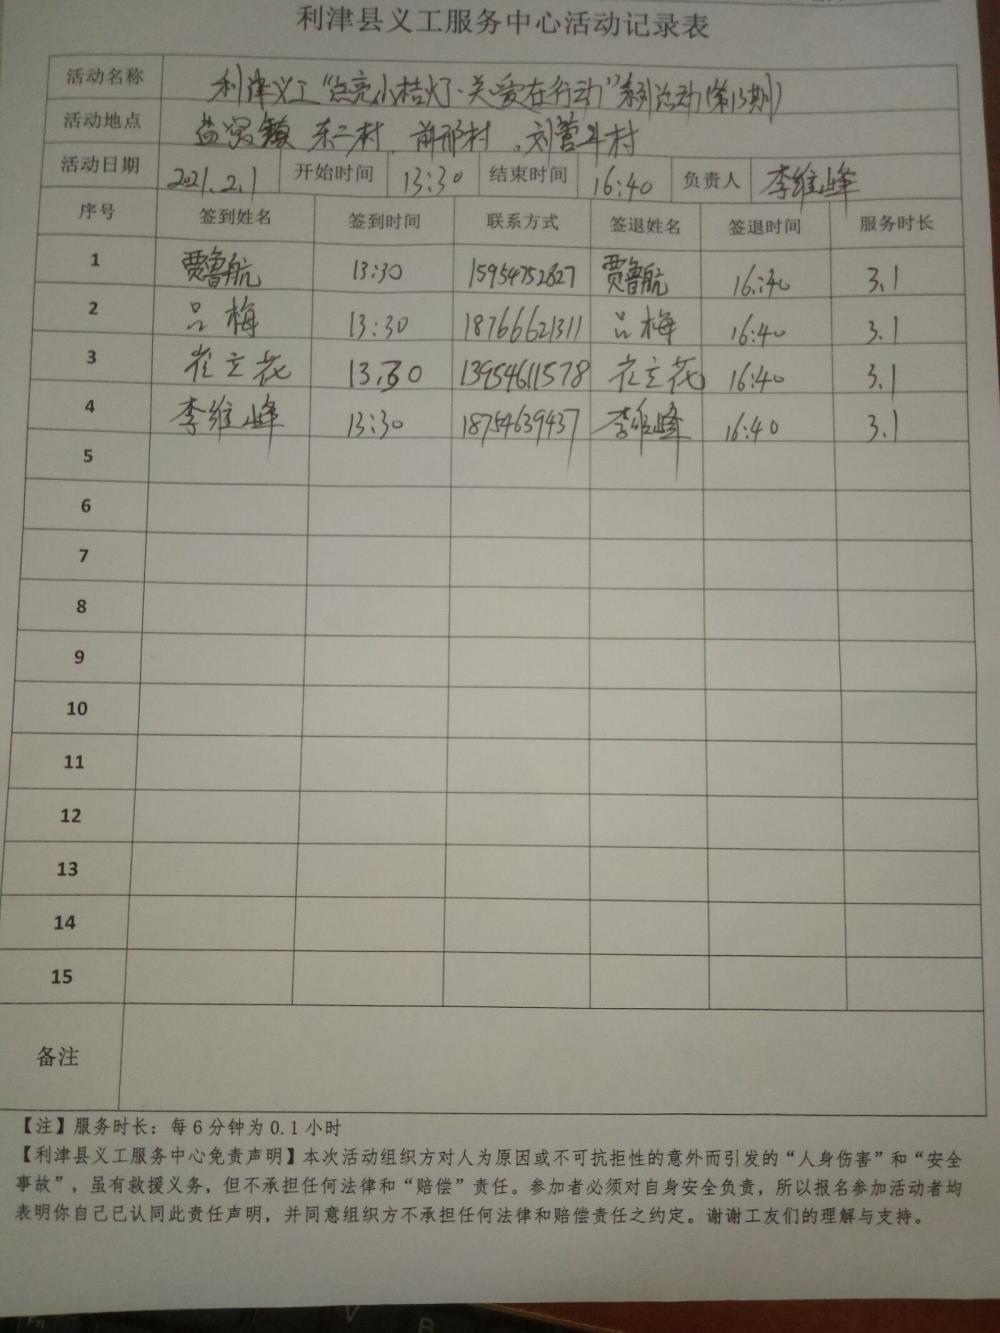 利津县义工服务中心活动记录表
活动名称 利津义工“点亮小桔灯·关爱在行动”系列活动(第13期)
活动地点 盐窝镇 东二村、前邢村、刘营村
活动日期 2021.2.1 开始时间 13:30 结束时间 16:40 负责人 李维峰
序号 签到姓名 签到时间 联系方式 签退姓名 签退时间 服务时长
1 贾鲁航 13:30 15954752827 贾鲁航 16:40 3.1
2 吕梅 13:30 18766621311 吕梅 16:40 3.1
3 崔立花 13:30 13954611578 崔立花 16:40 3.1
4 李维峰 13:30 18754639437 李维峰 16:40 3.1
5
6
7
8
9
10
11
12
13
14
15
备注
【注】服务时长：每6分钟为0.1小时
【利津县义工服务中心免责声明】本次活动组织方对人为原因或不可抗拒性的意外而引发的“人身伤害”和“安全
事故”，虽有救援义务，但不承担任何法律和“赔偿”责任。参加者必须对自身安全负责，所以报名参加活动者均
表明你自己已认同此责任声明，并同意组织方不承担任何法律和赔偿责任之约定。谢谢工友们的理解与支持。
Fn
V
B